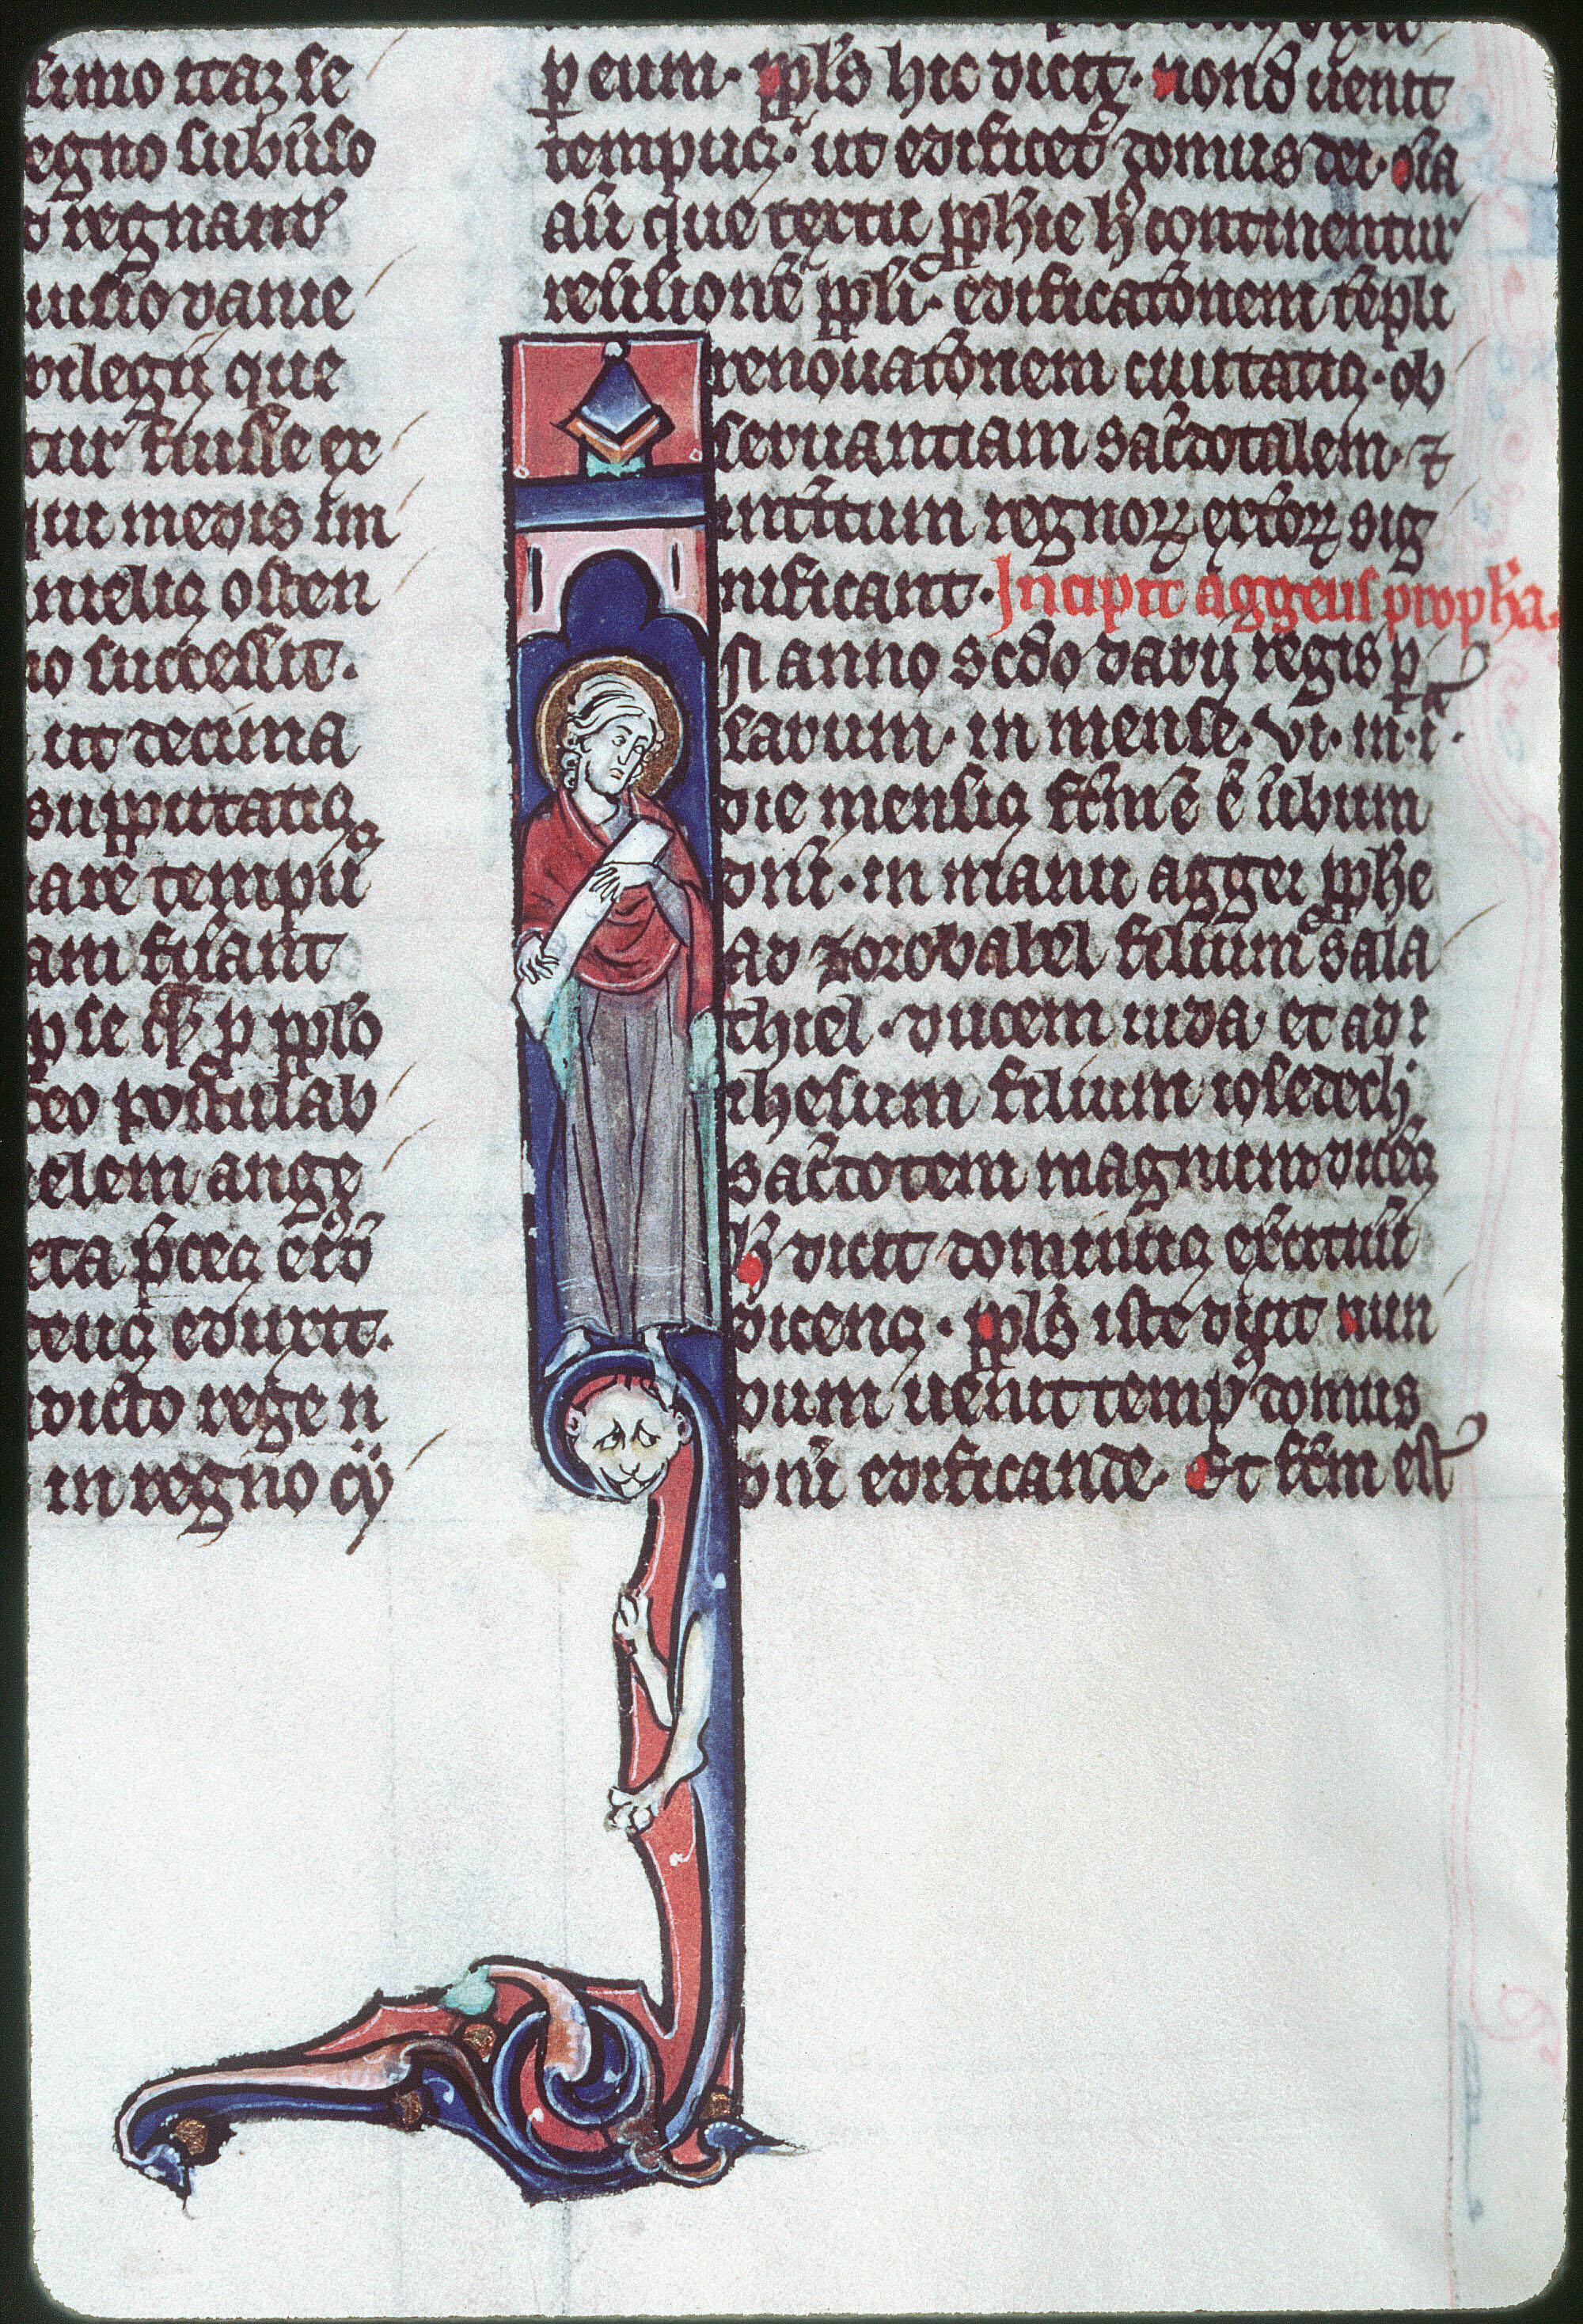 simo itaq; se
egno subuerso
d regnante
uisio danie
vilegij que
tur fuisse ex
qui medis im
nielis osten
no successit.
ut decima
supputatis
are tempu
am fuant
p se q p pplo
deo postulab
elem ange
eta preces
deus eduxit.
dicto rege n
in regno cy
p eum. ppls hic dicit. nond uenit
tempus. ut edificet domus dei. oia
aut que textu pphie h continentur
resilione ppli. edificatonem templi
renouatonem ciuitatis. ob
seruantiam sacdotalem. ⁊
interitum regnoꝝ extoꝝ sig
nificant. Incipit aggeus propha.
In anno scdo darij regis p
sarum. in mense. vi. in. i.
die mensis fcm e ubum
dni. in manu aggei pphe
ad zorobabel filium sala
thiel. ducem iuda et ad i
hesum filium iosedech
sacdotem magnum dicens
h dicit dominus exercituum
dicens. ppls iste dicit nun
dum uenit temp domus
dni edificande. Et fcm est